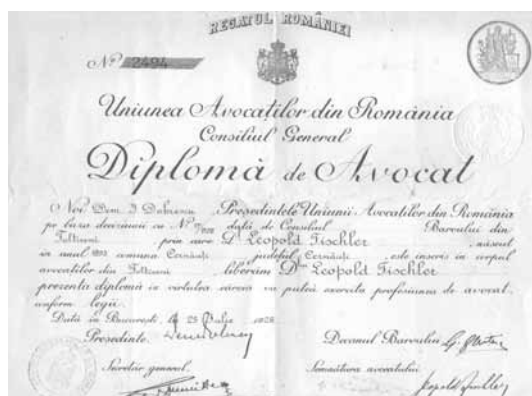 REGATUL ROMÂNIEI
Nº 2494
Uniunea Avocaților din România
Consiliul General
Diplomă de Avocat
Noi Dem. I. Dobrescu, Președintele Uniunii Avocaților din România
pe baza deciziunii cu Nº dată de Consiliul Baroului din
Fălticeni, prin care Dl Leopold Fischler, născut
în anul comuna Cernăuți județul Cernăuți este inscris în corpul
avocatilor din Fălticeni, liberăm Dlui Leopold Fischler
prezenta diplomă în virtutea căreia va putea exercita profesiunea de avocat,
conform legii.
Dată în București, 25 Iulie 1928
Președinte, Decanul Baroului,
Secretar general, Semnătura avocatului,